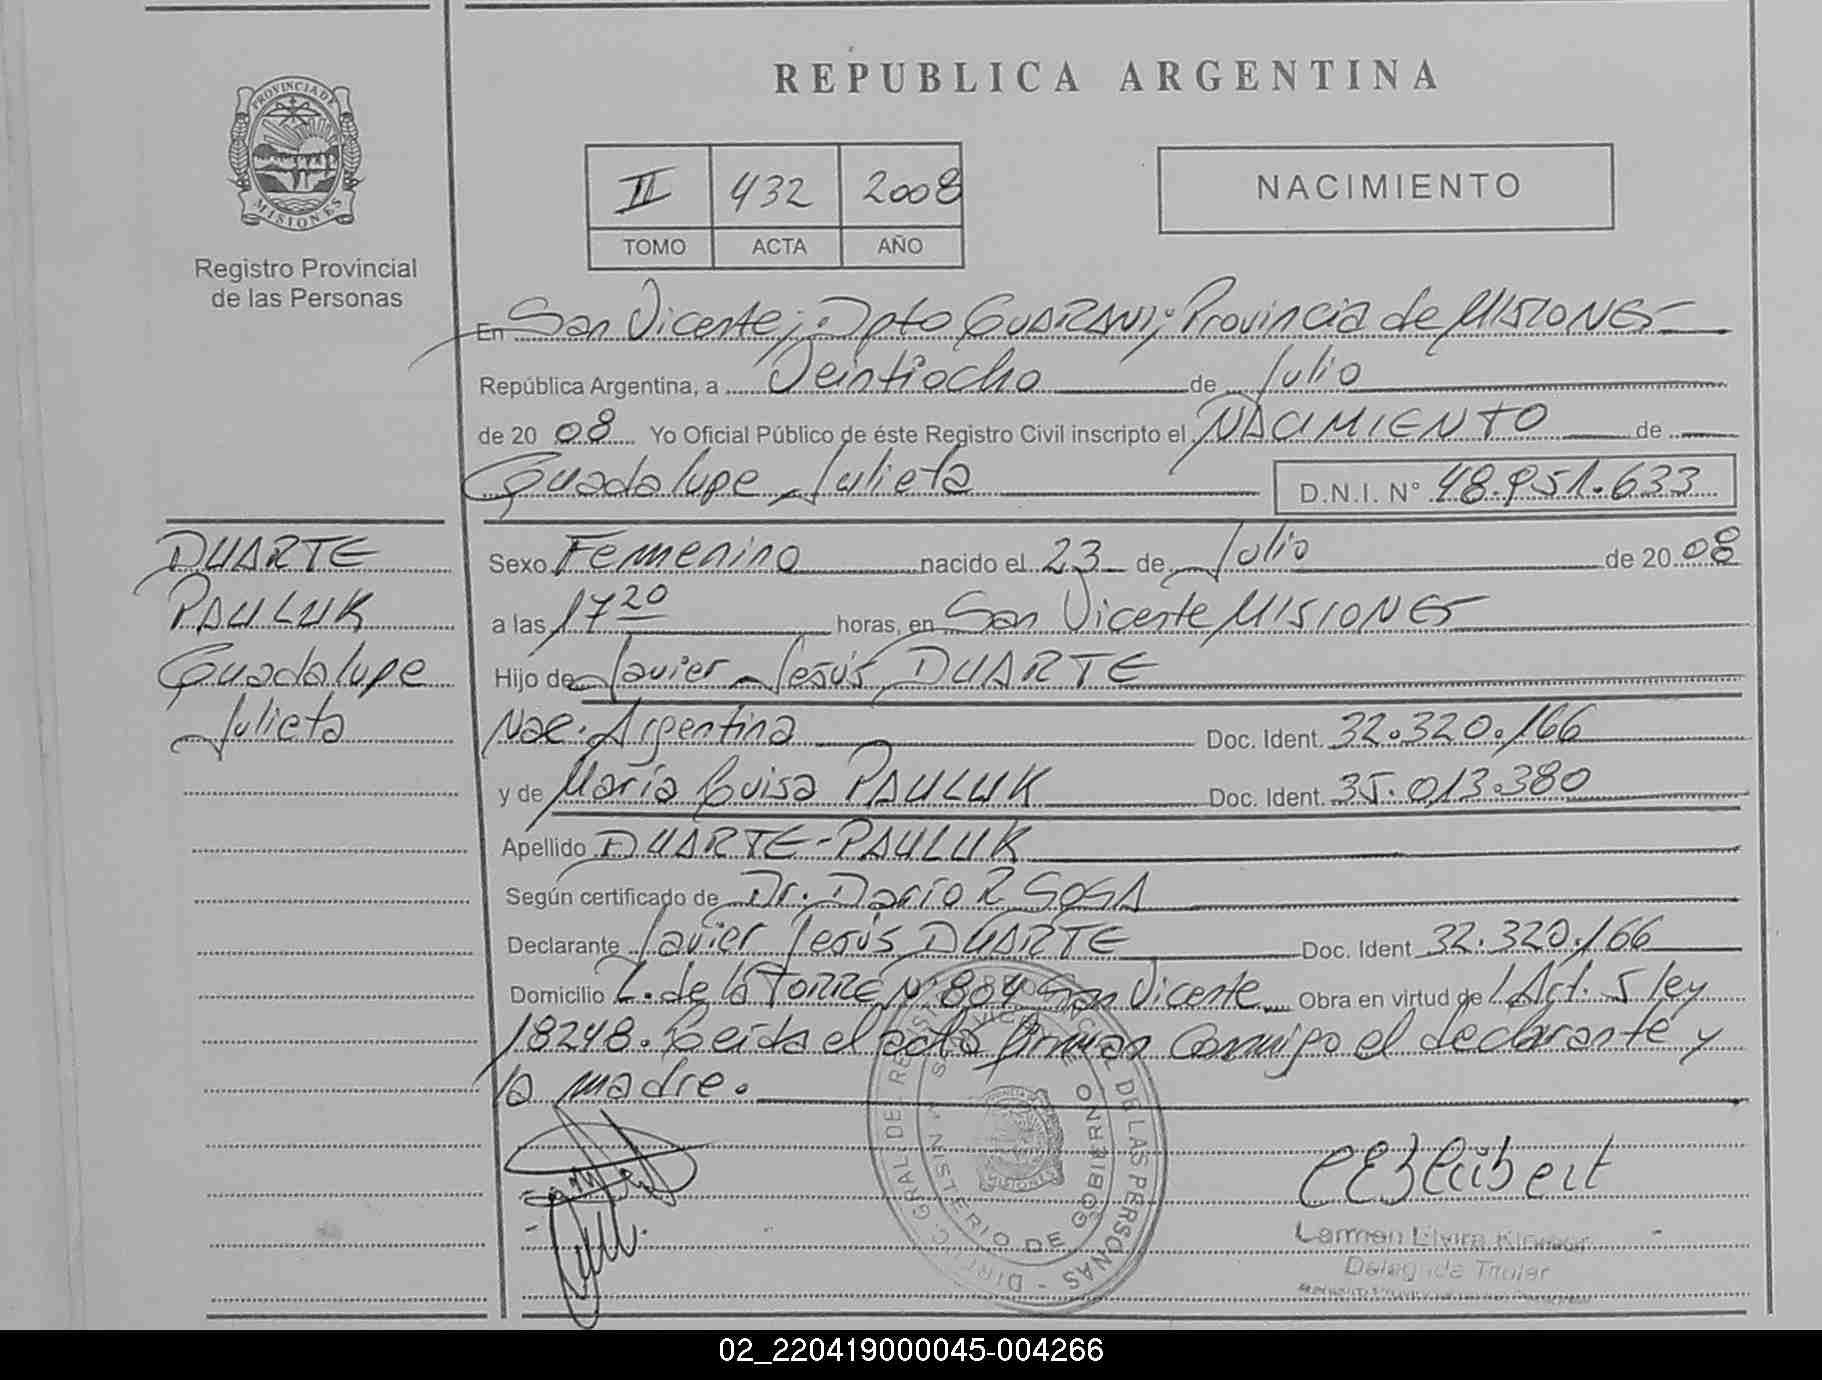 REPUBLICA ARGENTINA
PROVINCIA DE
MISIONES
Registro Provincial
de las Personas
II 432 2008
TOMO ACTA AÑO
NACIMIENTO
En San Vicente; Dpto GUARANI; Provincia de MISIONES
República Argentina, a Veintiocho de Julio
de 20 08 Yo Oficial Público de éste Registro Civil inscripto el NACIMIENTO de
Guadalupe Julieta D.N.I. N° 48.951.633
DUARTE
PAULUK
Guadalupe
Julieta
Sexo Femenino nacido el 23 de Julio de 20 08
a las 17 20 horas, en San Vicente MISIONES
Hijo de Javier Jesús DUARTE
Nac. Argentina Doc. Ident. 32.320.166
y de María Luisa PAULUK Doc. Ident. 35.013.380
Apellido DUARTE-PAULUK
Según certificado de Dr. Darío R SOSA
Declarante Javier Jesús DUARTE Doc. Ident 32.320.166
Domicilio L. de la TORRE N° 804 San Vicente Obra en virtud de Art. 5 ley
18248. Leída el acta firman conmigo el declarante y
la madre.
DE LAS PERSONAS
MINISTERIO DE GOBIERNO
MISIONES
Carmen Elvira
Delegada Titular
02_220419000045-004266